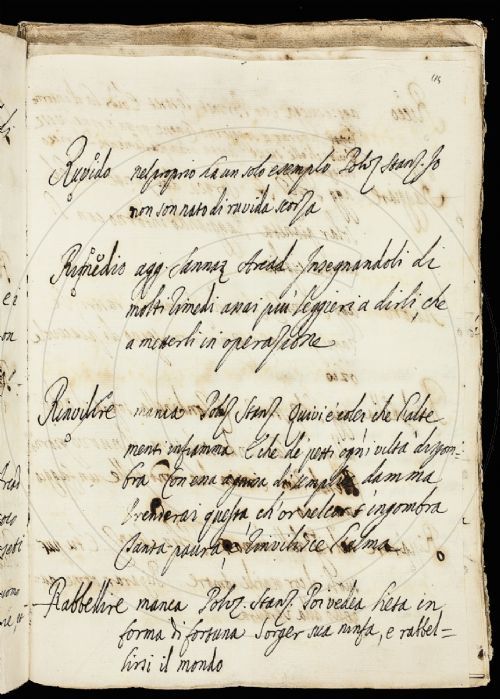 Ruvido nel proprio ha un solo esemplo Poliz. Stanz. Io
non son nato di ruvida scorza
Rimedio agg. Sannaz. Arcad. Insegnandoli di
molti rimedi assai più leggieri a dirli, che
a metterli in operazione
Rinvilire manca Poliz. Stanz. Quivi è colei che l'alte
menti infiamma E che de petti ogni viltà disgom-
bra Con una damma
questa, ch'or ingombra
Tanta paura, e rinvilisce l'alma
Rabbellire manca Poliz. Stanz. Poi vedea lieta in
forma di fortuna Sorger sua ninfa, e rabbel-
lirsi il mondo